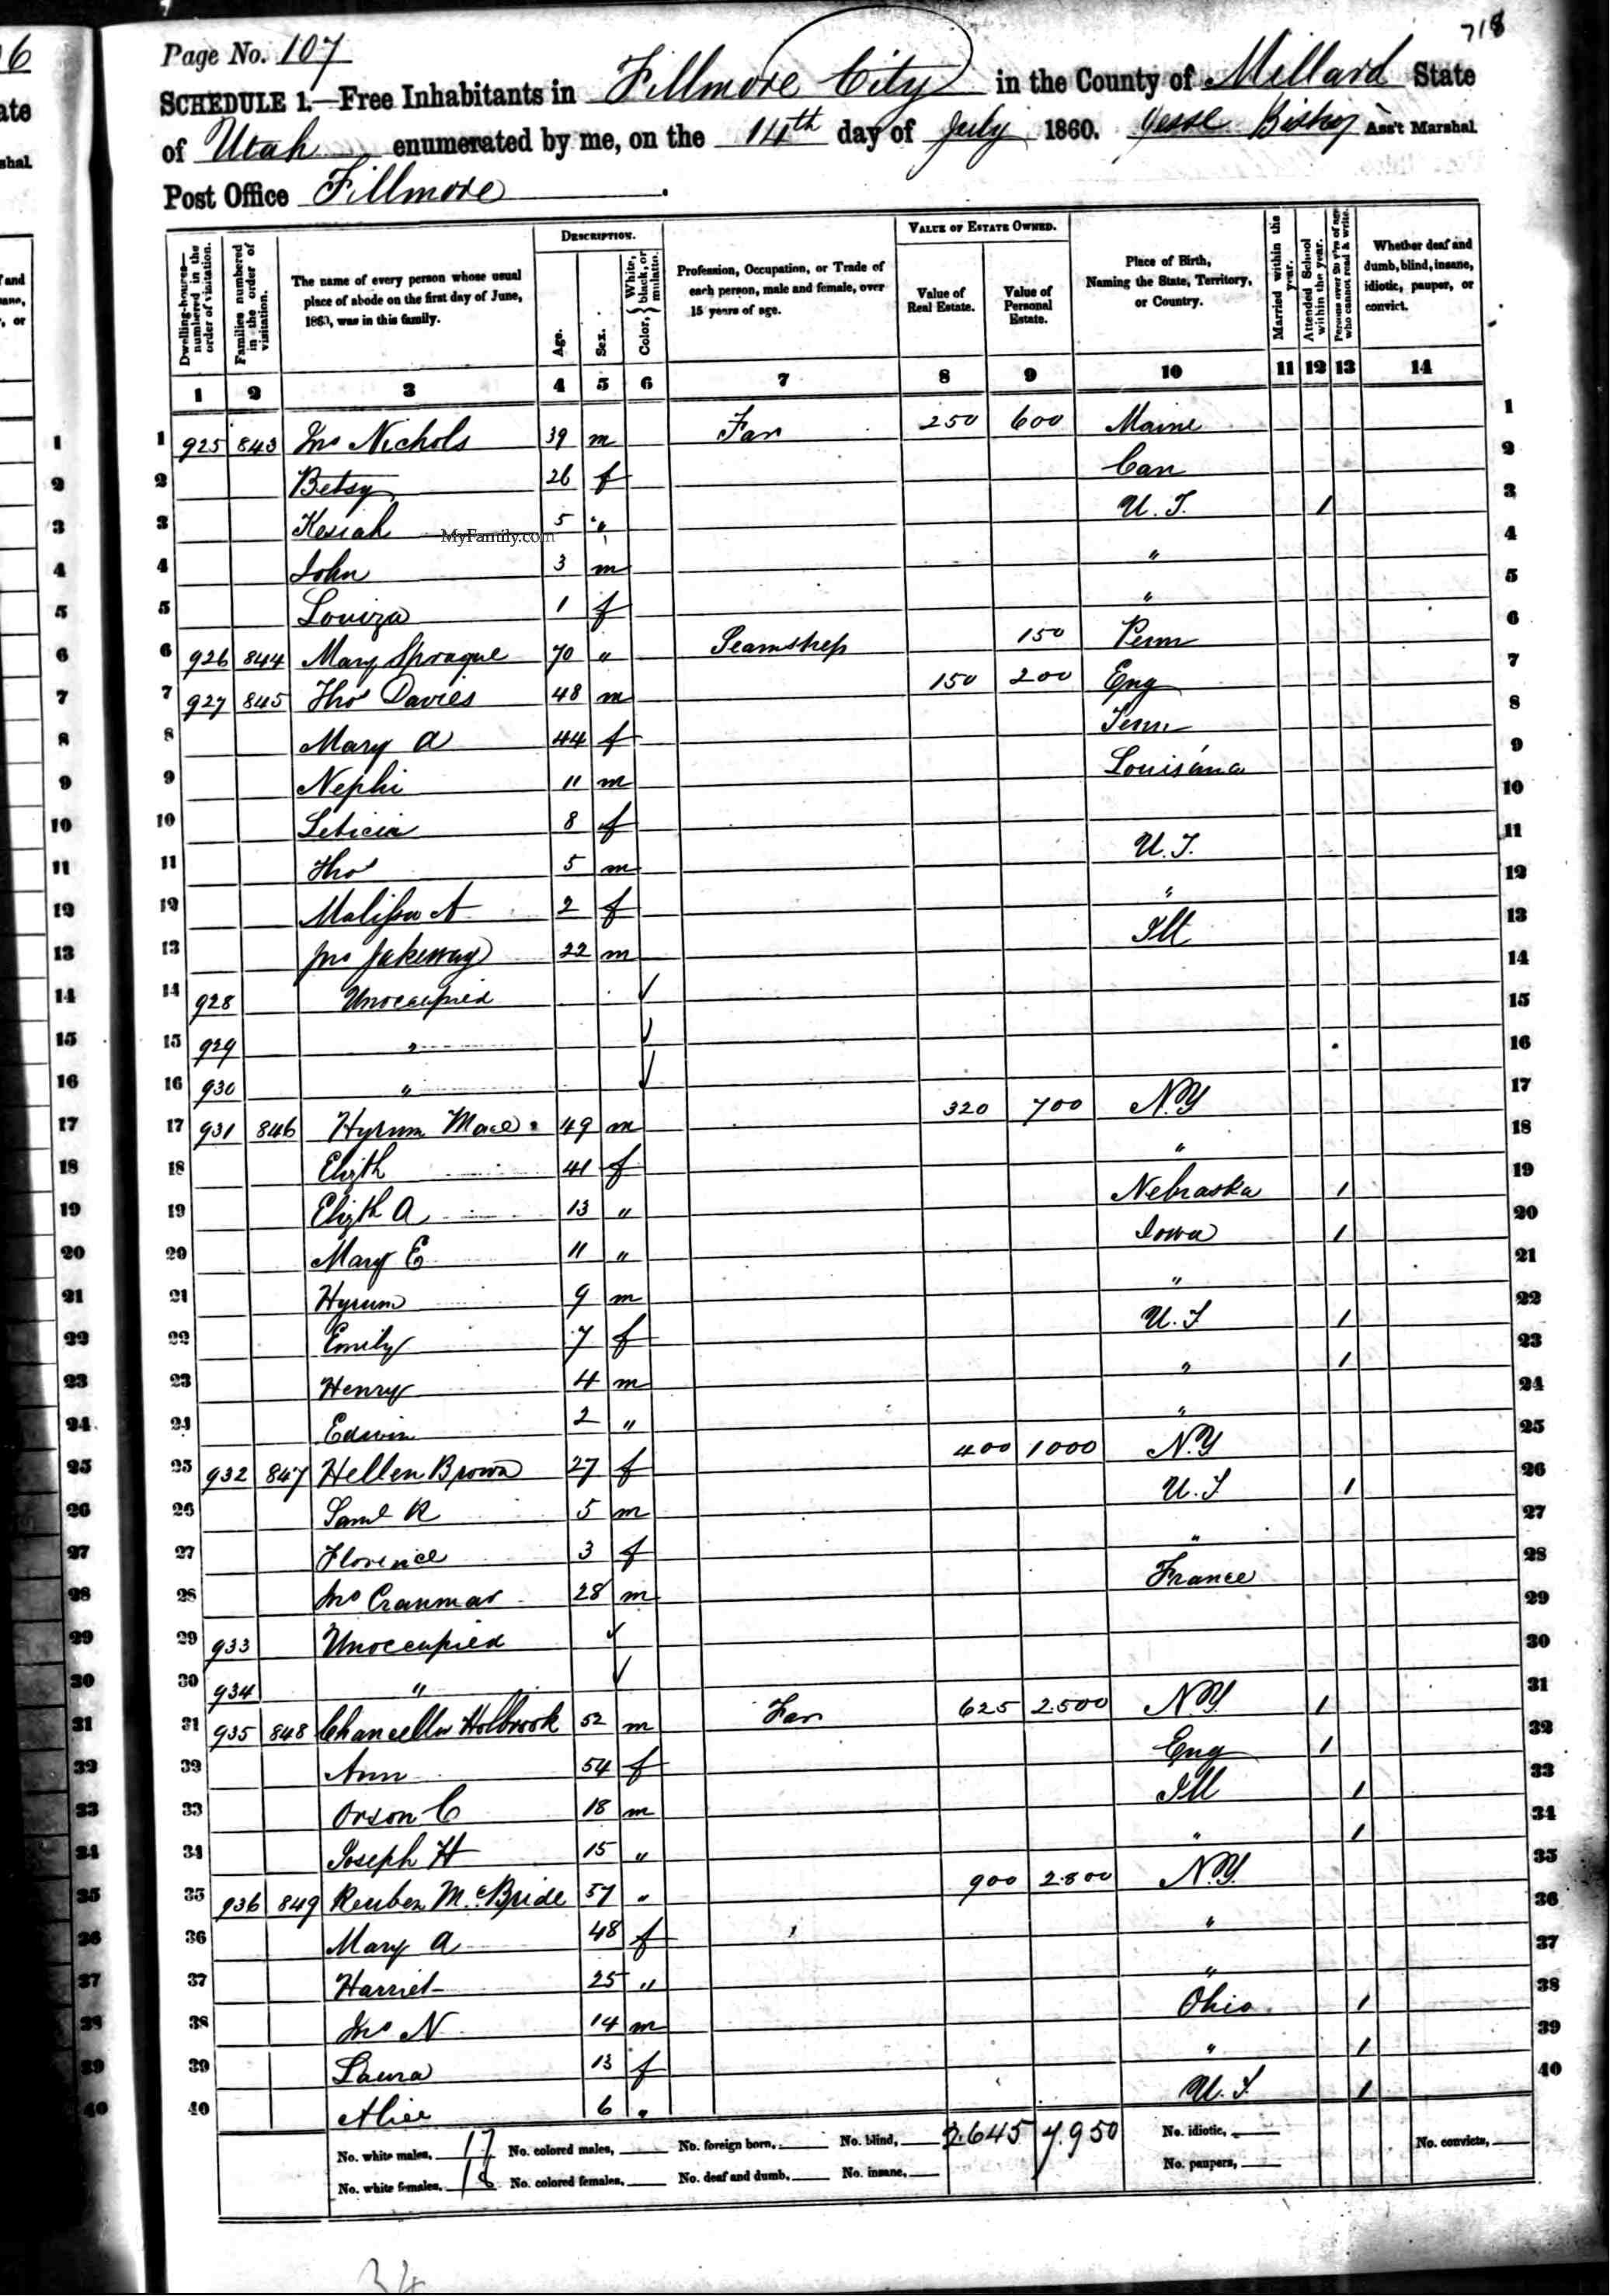 718
Page No. 107
SCHEDULE 1.—Free Inhabitants in Fillmore City in the County of Millard State
of Utah enumerated by me, on the 14th day of July 1860. Jesse Bishop Ass't Marshal
Post Office Fillmore.
Dwelling-houses—numbered in the order of visitation. Families numbered in the order of visitation. The name of every person whose usual place of abode on the first day of June, 1860, was in this family. DESCRIPTION. Age. Sex. Color, { White, black, or mulatto. Profession, Occupation, or Trade of each person, male and female, over 15 years of age. VALUE OF ESTATE OWNED. Value of Real Estate. Value of Personal Estate. Place of Birth, Naming the State, Territory, or Country. Married within the year. Attended School within the year. Persons over 20 y'rs of age who cannot read & write. Whether deaf and dumb, blind, insane, idiotic, pauper, or convict.
1 2 3 4 5 6 7 8 9 10 11 12 13 14
1 925 843 Jno Nichols 39 m Far 250 600 Maine 1
2 Betsy 26 f Can 2
3 Kesiah 5 " U.T. 1 3
MyFamily.com
4 John 3 m " 4
5 Louiza 1 f " 5
6 926 844 Mary Sprague 70 " Seamstress 150 Penn 6
7 927 845 Thos Davies 48 m 150 200 Eng 7
8 Mary A 44 f Tenn 8
9 Nephi 11 m Louisiana 9
10 Leticia 8 f 10
11 Thos 5 m U.T. 11
12 Malissa A 2 f " 12
13 Jno Jakeway 22 m Ill 13
14 928 Unoccupied ✓ 14
15 929 " ✓ 15
16 930 " ✓ 16
17 931 846 Hyrum Mace 49 m 320 700 N.Y 17
18 Elizth 41 f " 18
19 Elizth A 13 " Nebraska 1 19
20 Mary E 11 " Iowa 1 20
21 Hyrum 9 m " 21
22 Emily 7 f U.T 1 22
23 Henry 4 m " 1 23
24 Edwin 2 " " 24
25 932 847 Hellen Brown 27 f 400 1000 N.Y 25
26 Saml R 5 m U.T 1 26
27 Florence 3 f " 27
28 Jno Cranmar 28 m France 28
29 933 Unoccupied ✓ 29
30 934 " ✓ 30
31 935 848 Chancellor Holbrook 52 m Far 625 2500 N.Y. 1 31
32 Ann 54 f Eng 1 32
33 Orson C 18 m Ill 1 33
34 Joseph H 15 " " 1 34
35 936 849 Reuben McBride 57 " 900 2800 N.Y. 35
36 Mary A 48 f " 36
37 Harriet 25 " " 37
38 Jno N 14 m Ohio 1 38
39 Laura 13 f " 1 39
40 Alice 6 " U.T. 1 40
No. white males, 17 No. colored males, No. foreign born, No. blind, 2645 7.950 No. idiotic, No. convicts,
No. white females, 18 No. colored females, No. deaf and dumb, No. insane, No. paupers,
34